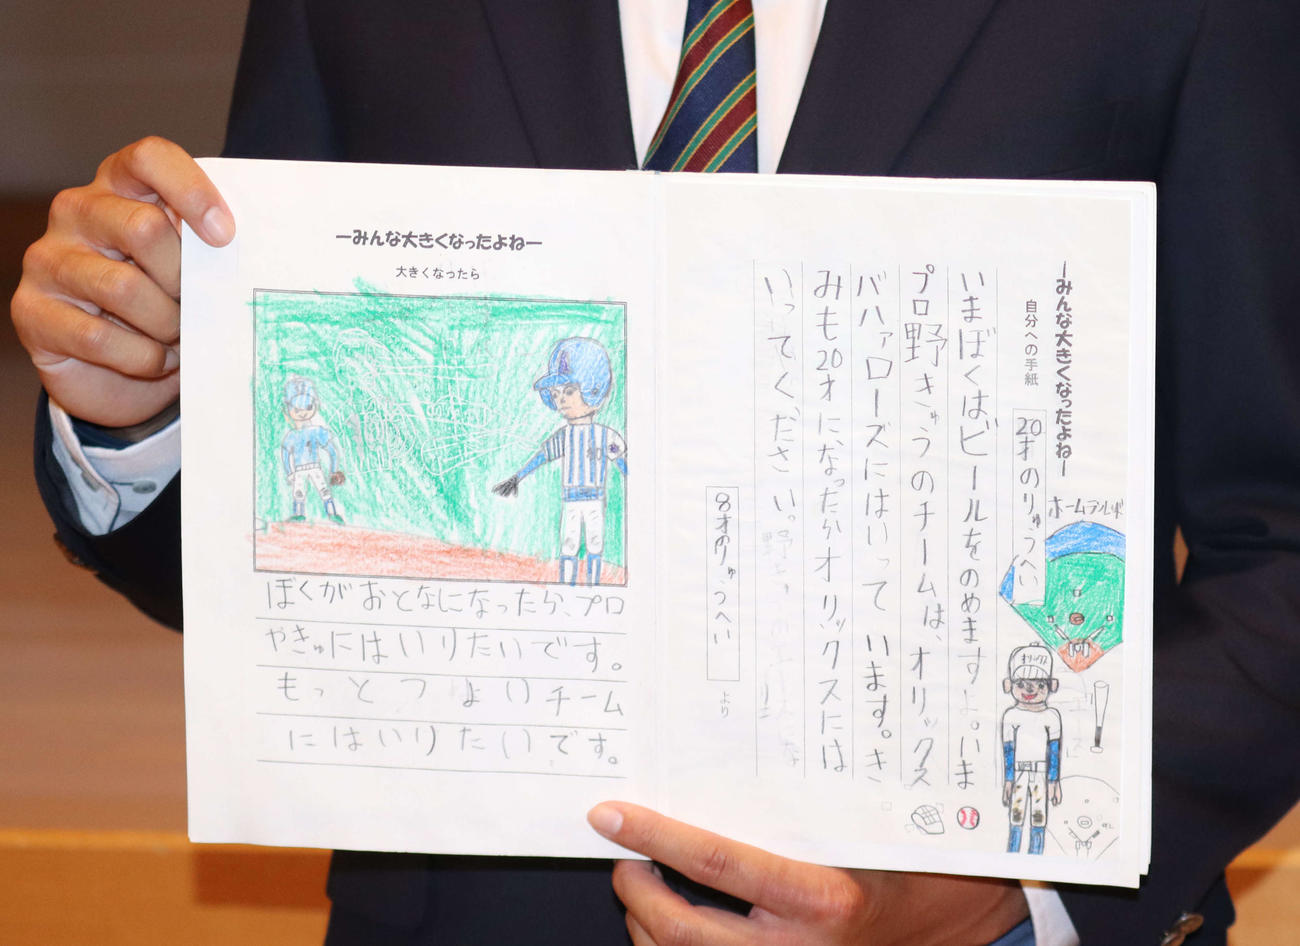 ーみんな大きくなったよねー
大きくなったら
ぼくがおとなになったら、プロ
やきゅにはいりたいです。
もっとつよいチーム
にはいりたいです。
ーみんな大きくなったよねー
自分への手紙
20才のりゅうへい
いまぼくはビールをのめますよ。いま
プロ野きゅうのチームは、オリックス
バハァローズにはいって います。き
みも20才に、なったらオリックスには
いってください。
8才のりゅうへい
より
オリックス